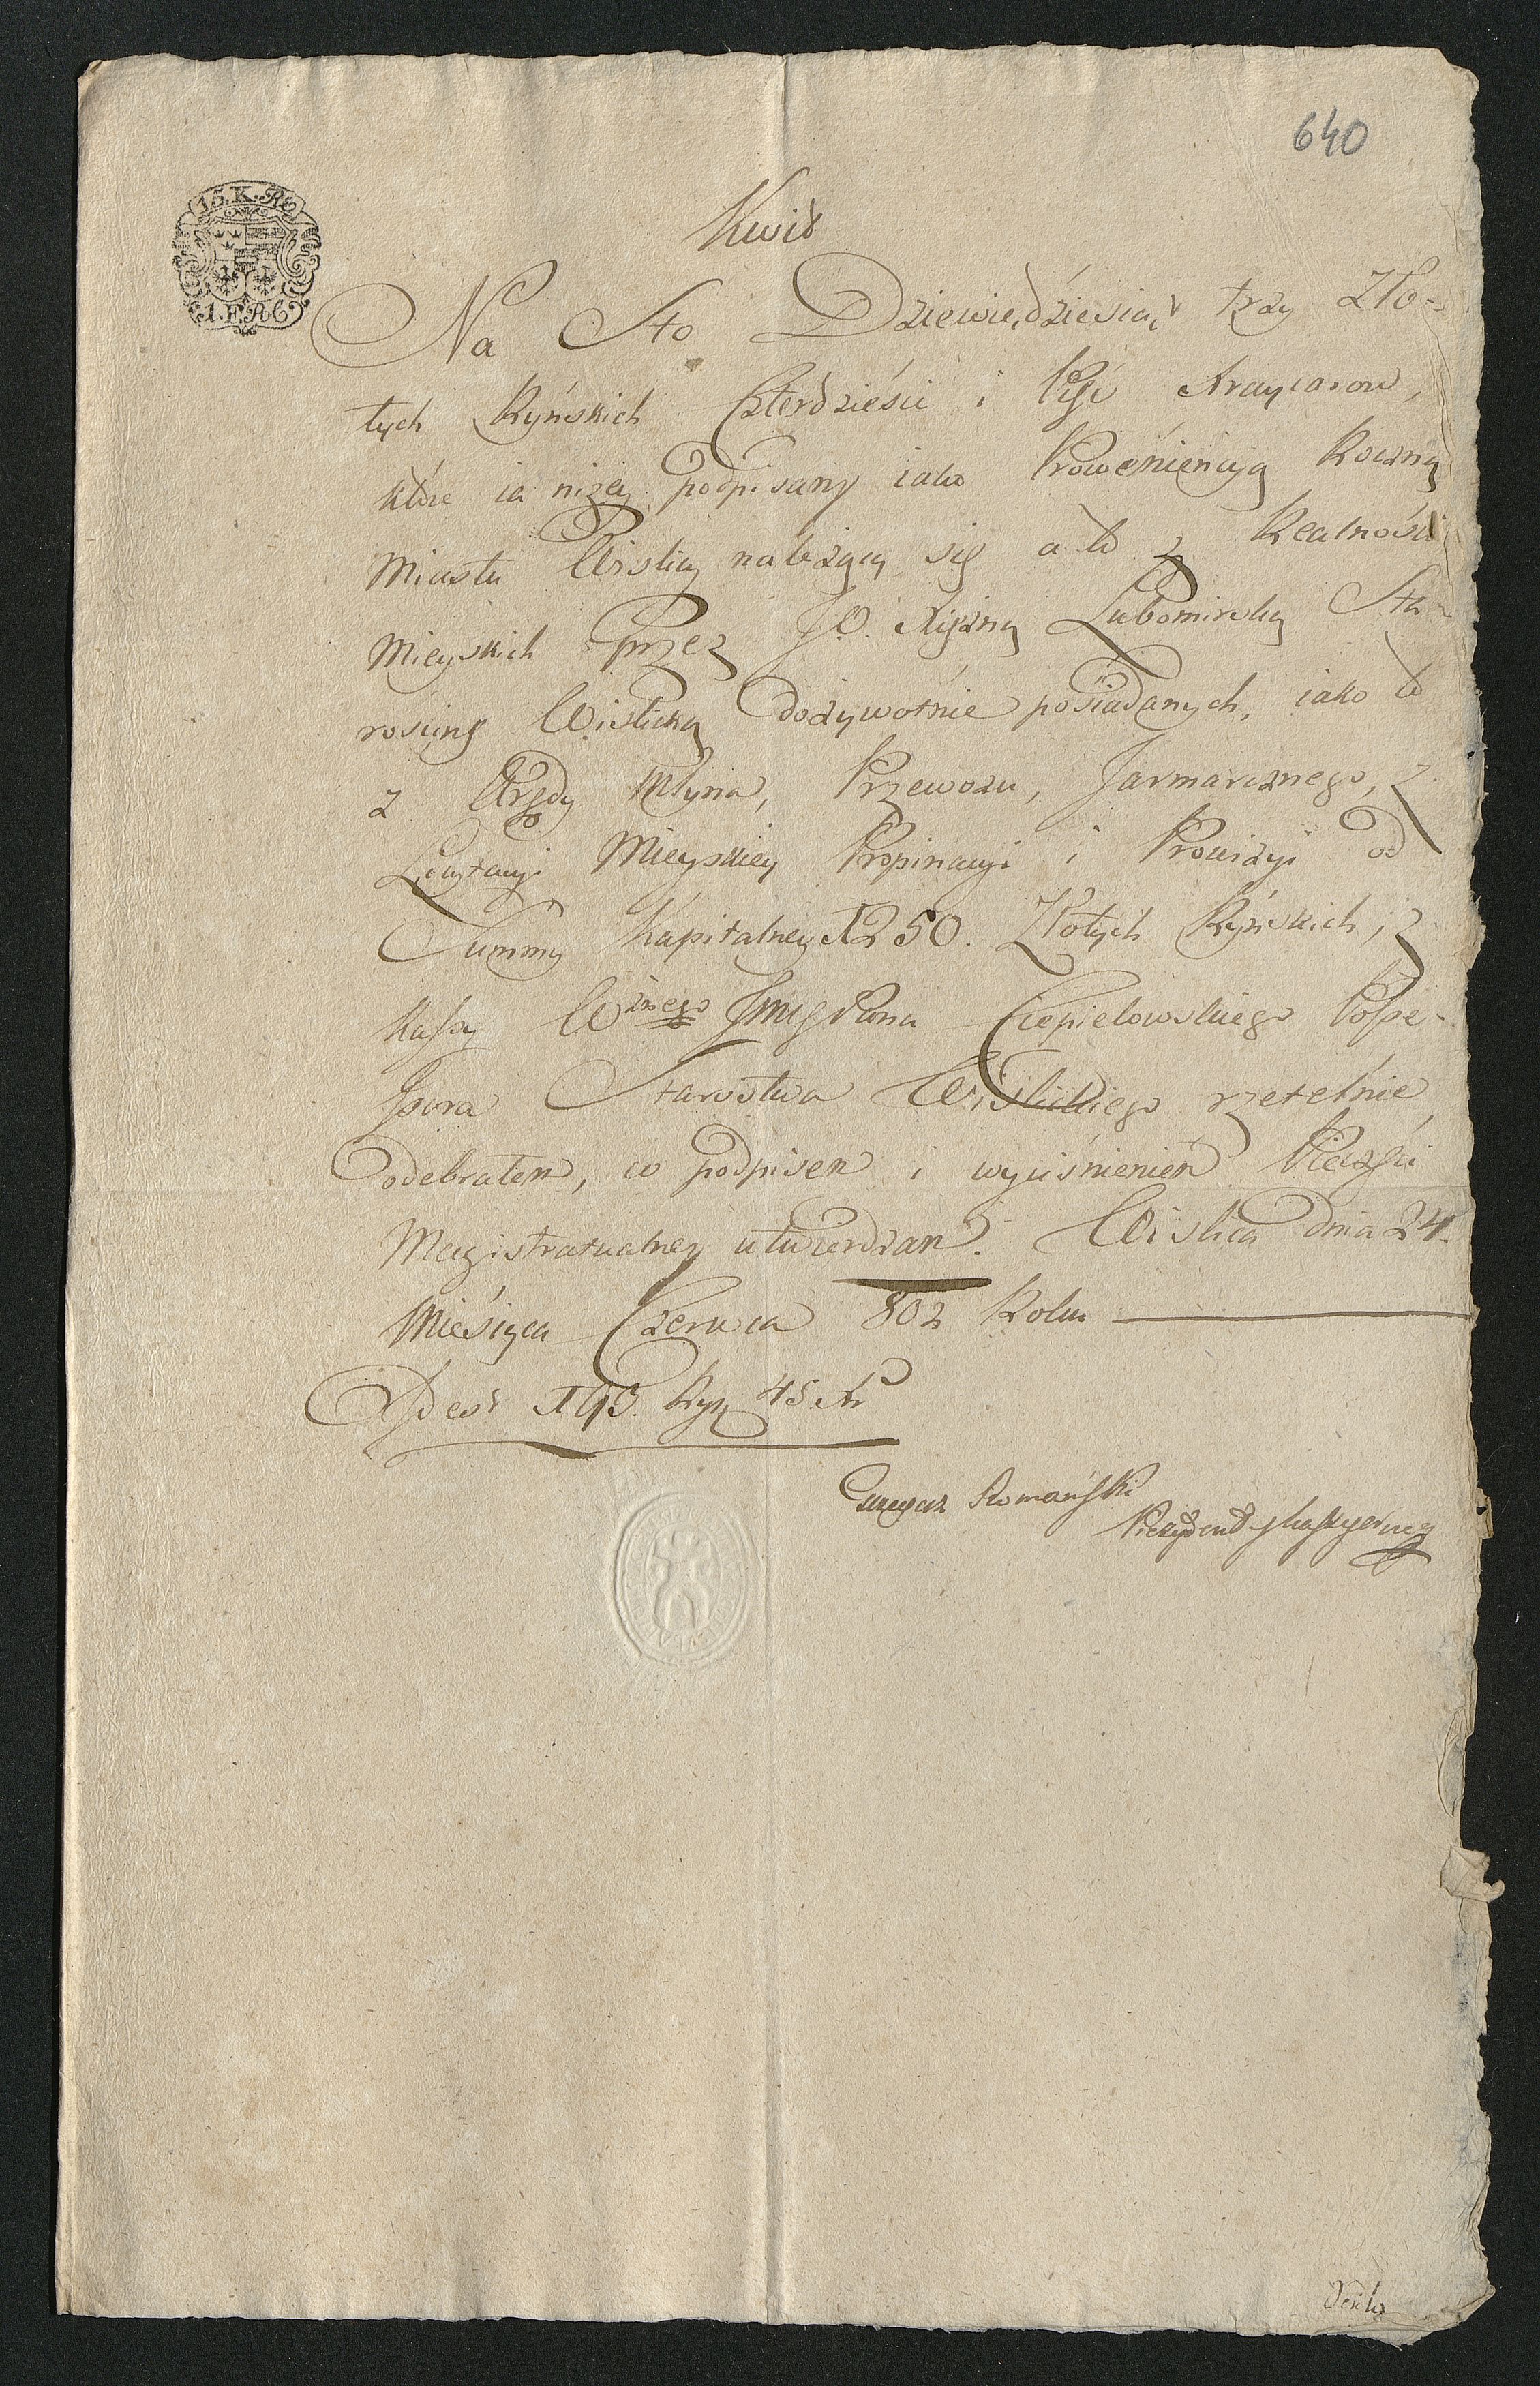 640
15. K. R.
1. F. R.
Kwit
Na Sto Dziewięćdziesiąt trzy Zło-
tych Ryńskich Czterdzieści i Pięć Kraycarow,
które ia niżey podpisany iako Prowenięncyą Roczną
Miastu Wislicy należącą się a to z Realności
Mieyskich przez J.O. Xiężną Lubomirską Sta-
rościnę Wislicką dożywotnie posiadanych, iako to
z Arędy Młyna, Przewozu, Jarmarcznego, z
Mieyskiey Propinacyi i Prowizyi od
Summy Kapitalney 1250. Złotych Ryńskich, z
Kassy Wżnego Jmć Pana Ciepielowskiego Posse-
ssora Starostwa Wislickiego rzetelnie
odebrałem, co podpisem i wyciśnieniem Pieczęci
Magistratualney utwierdzam. Wislica dnia 24.
Miesiąca Czerwca 802 Roku
Id est 193. Ryń 45 Xr
Romański
Prezydent y Kassyer mp